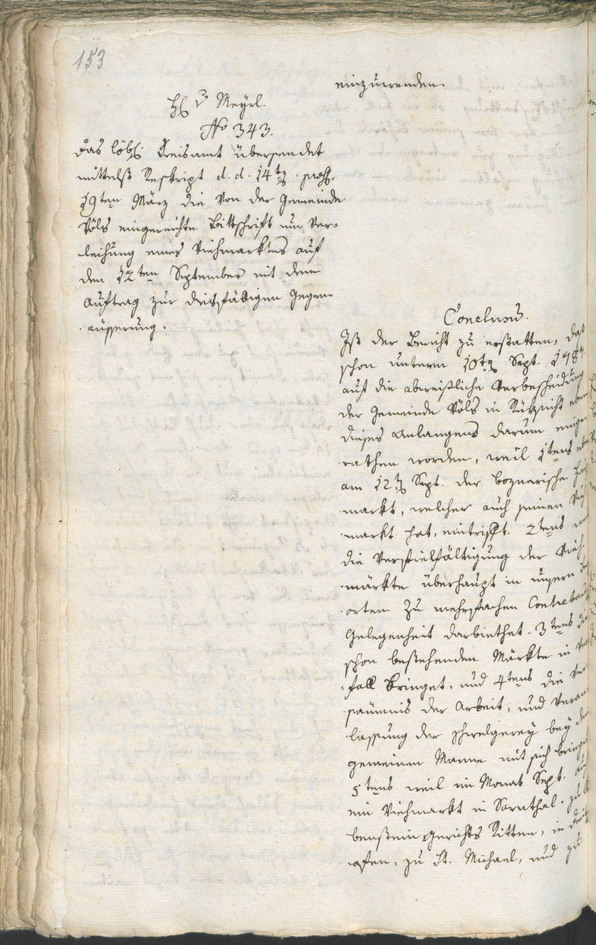 153
einzuwenden.
H. v. Meyrl.
No 343.
Das löbl. Kreisamt übersendet
mittelst Reskript d. d. 14ten
19ten März die von der Gemeinde
Völs eingereichte Bittschrift um Ver-
leihung eines Viehmarktes auf
den 12ten September mit dem
Auftrag zur diesfälligen Gegen-
äusserung.
Conclusum.
Ist der Bericht zu erstatten, daß
schon unterm 10ten Sept. 178
auf die abweisliche Verbescheidung
der Gemeinde Völs in Rüksicht eben
dieses Anlangens darum einge
rathen worden, weil 1tens eben
am 12ten Sept. der boznerische
markt, welcher auch seinen Vieh
markt hat, eintrifft. 2tens
die Vervielfältigung der Vieh-
märkte überhaupt in unsern
orten zu mehrfachen Contreband
Gelegenheit darbiethet. 3tens die
schon bestehenden Märkte in Ver
fall bringet, und 4tens die Ver
säumnis der Arbeit, und Veran
lassung der Schwelgerey bey dem
gemeinen Manne mit sich bringe
5tens weil im Monat Sept. auch
ein Viehmarkt in Sarnthal, zu
benstein Gerichts Ritten, in
ofen, zu St. Michael, und zu